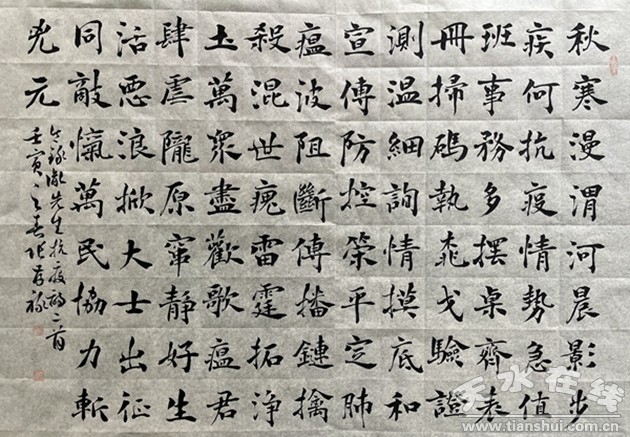 秋寒漫渭河晨影步
疾何抗疫情勢急值
班事務多擺桌齊表
冊掃碼執戈驗證
測温細詢情摸底和
宣傳防控榮平定肺
瘟波阻斷傳播鏈擒
殺混世雷霆拓浄
土萬衆盡歡歌瘟君
肆虐隴原窜静好生
活惡浪掀大士出征
同敵愾萬民協力斬
兇元
先生抗疫詩二首
壬寅之春
天水在线
www.tianshui.com.cn